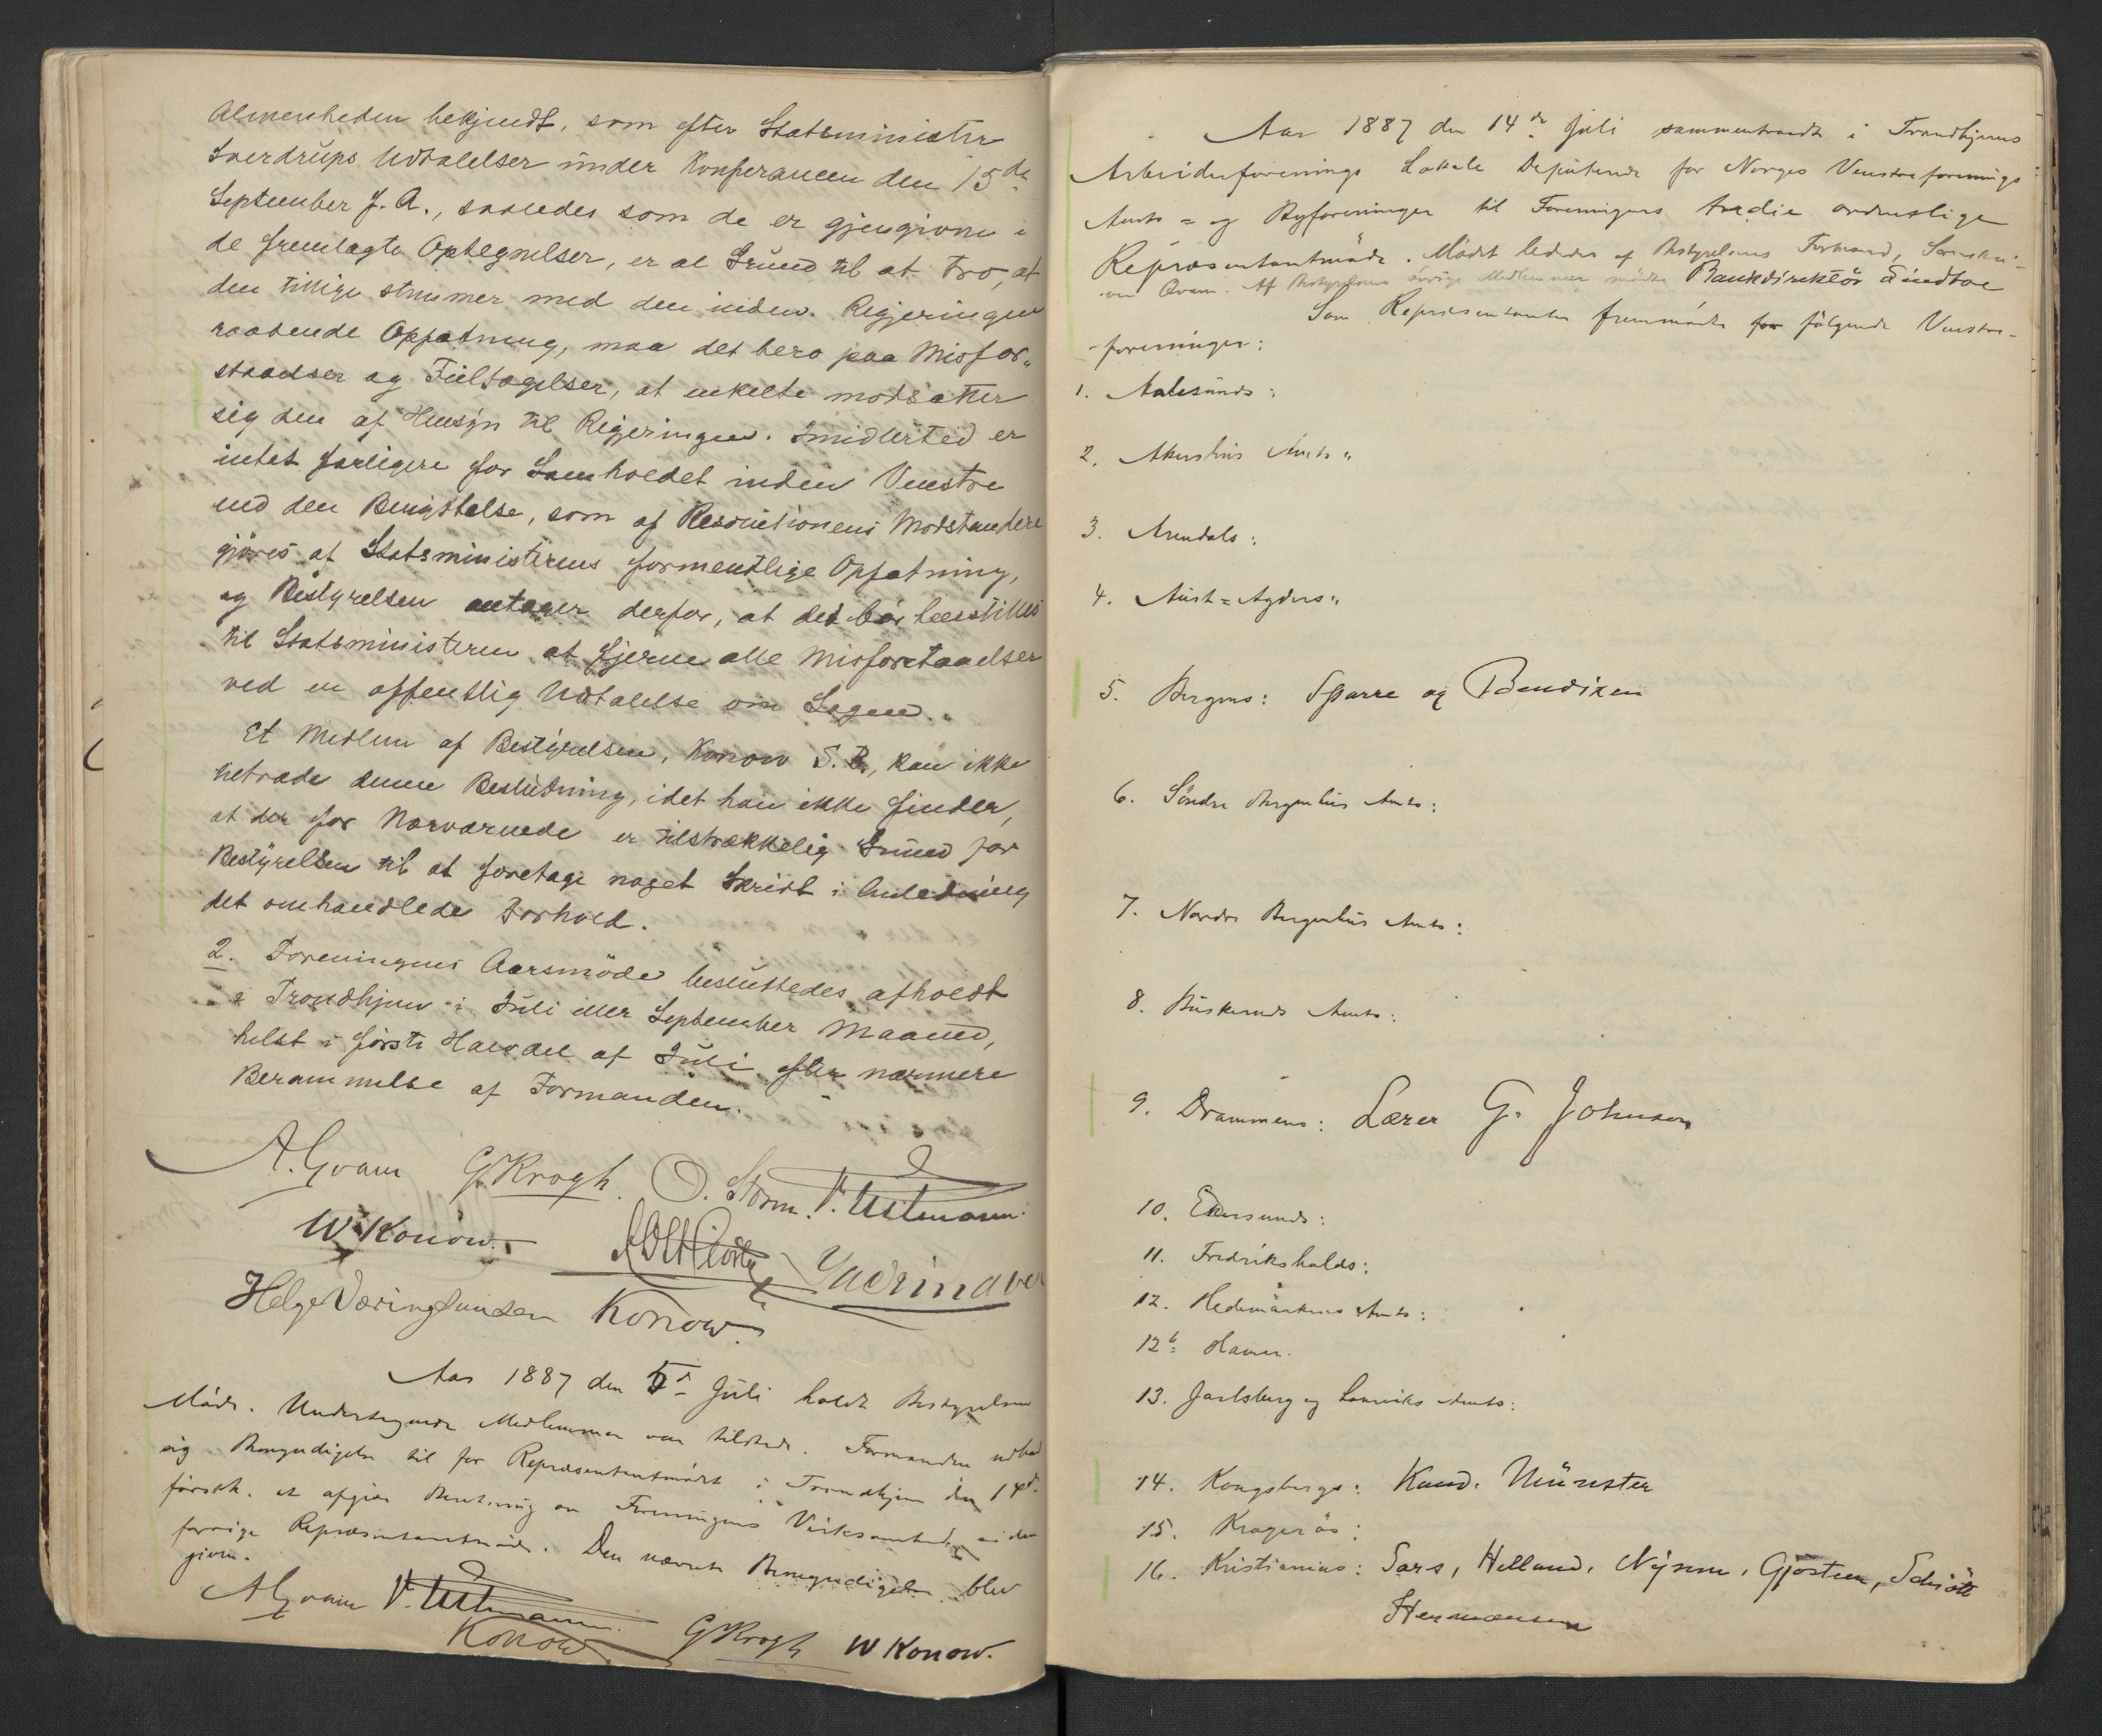 Almenheden bekjendt, som efter Statsminister
Sverdrups Udtalelser under Konferancen den 15de
September f. A., saaledes som de er gjengivne i
de fremlagte Optegnelser, er al Grund til at tro, at
den tillige stemmer med den inden Regjeringen
raadende Opfatning, maa det bero paa Misfor-
staaelser og Feiltagelser, at enkelte modsætter
sig den af Hensyn til Regjeringen. Imidlertid er
intet farligere for Samholdet inden Venstre
end den Benyttelse, som af Resolutionens Modstandere
gjøres af Statsministerens formentlige Opfatning,
og Bestyrelsen antager derfor, at det bør henstilles
til Statsministeren at fjerne alle Misforstaaelser
ved en offentlig Udtalelse om Sagen."
Et Medlem af Bestyrelsen, Konow S. B., kan ikke
tiltræde denne Beslutning, idet han ikke finder,
at der for Nærværende er tilstrækkelig Grund for
Bestyrelsen til at foretage noget Skridt i Anledning
det omhandlede Forhold.
2. Foreningens Aarsmöde besluttedes afholdt
i Trondhjem i Juli eller September Maaned,
helst i første Halvdel af Juli efter nærmere
Berammelse af Formanden.
A. Qvam G Krogh. O. Storm. V. Ullmann.
W Konow.
Helge Væringsaasen Konow.
Aar 1887 den 5te Juli holdt Bestyrelsen
Møde. Undertegnede Medlemmer var tilstede. Formanden udbad
sig Bemyndigelse til for Repræsentantmødet i Trondhjem den 14de
førstk. at afgive Beretning om Foreningens Virksomhed siden
forrige Repræsentantmøde. Den nævnte Bemyndigelse blev
given.
A Qvam V. Ullmann.
Konow G Krogh W Konow.
Aar 1887 den 14de Juli sammentraadte i Trondhjems
Arbeiderforenings Lokale Deputerede for Norges Venstreforenings
Amts- og Byforeninger til Foreningens tredie ordentlige
Repræsentantmöde. Mödet lededes af Bestyrelsens Formand, Sorenskri-
ver Qvam. Af Bestyrelsens øvrige Medlemmer mødte Bankdirektör Lindboe
Som Repræsentanter fremmødte for fölgende Venstre-
foreninger:
1. Aalesunds:
2. Akershus Amts "
3. Arendals:
4. Aust-Agders "
5. Bergens: Sparre og Bendixen
6. Söndre Bergenhus Amts:
7. Nordre Bergenhus Amts:
8. Buskeruds Amts:
9. Drammens: Lærer G. Johnson
10. Ekersunds:
11. Fredrikshalds:
12. Hedemarkens Amts:
12b Hamar.
13. Jarlsberg og Laurviks Amts:
14. Kongsbergs: Kand. Münster
15. Kragerös:
16. Kristianias: Sars, Helland, Nysom, Gjøstein, Schiött
Hermansen